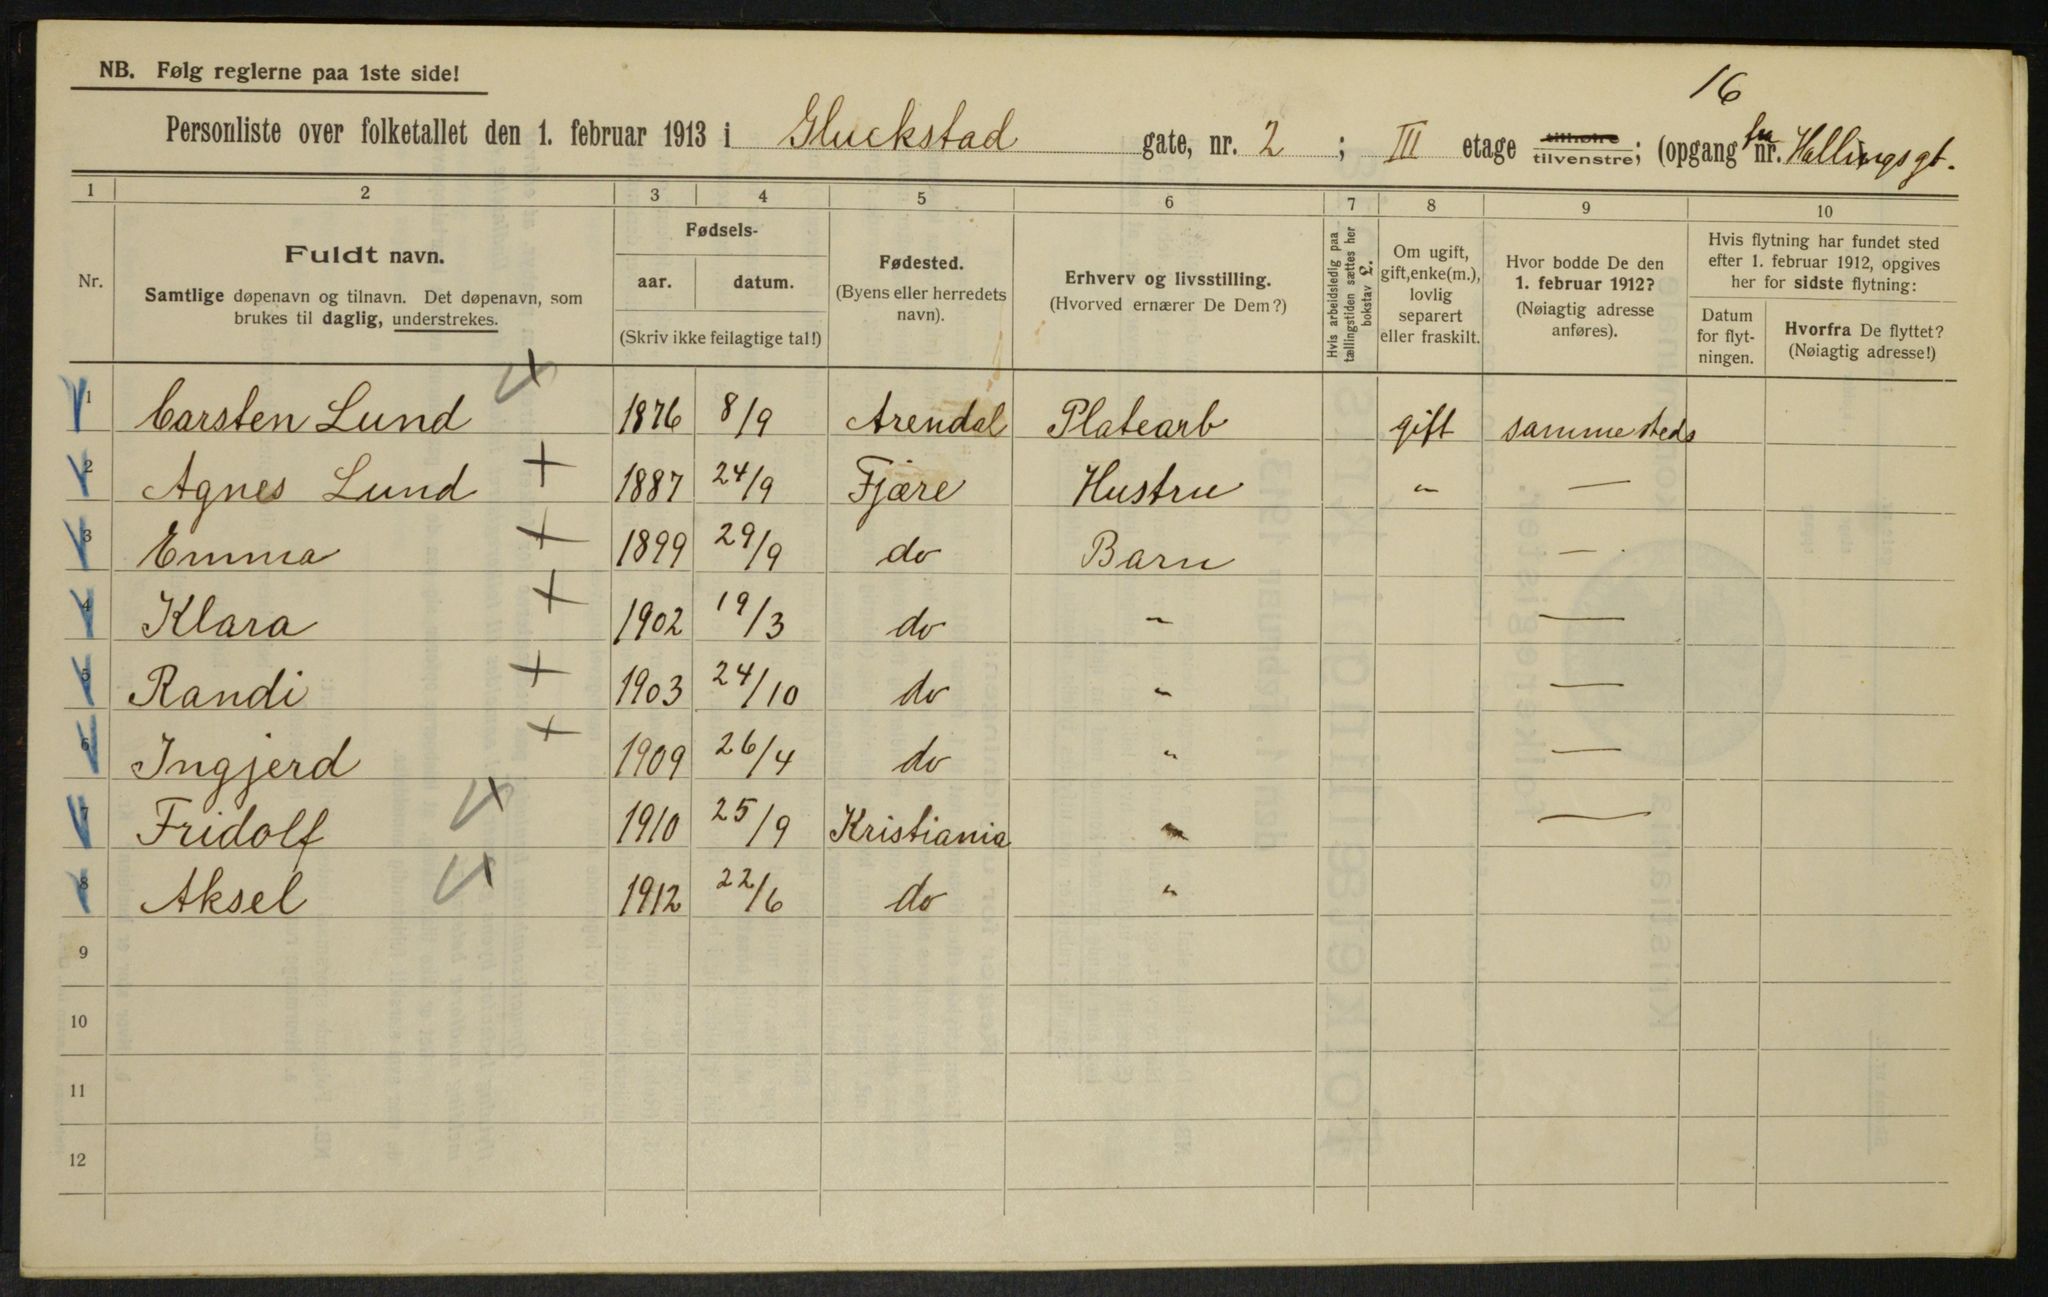 16
NB. Følg reglerne paa 1ste side!
Personliste over folketallet den 1. februar 1913 i Gluckstad gate, nr. 2 ; III etage tilhøire tilvenstre; (opgang fra nr. Hallingsgt.
1 2 3 4 5 6 7 8 9 10
Nr.
Fuldt navn.
Samtlige døpenavn og tilnavn. Det døpenavn, som
brukes til daglig, understrekes.
Fødsels-
aar. datum.
(Skriv ikke feilagtige tal!)
Fødested.
(Byens eller herredets
navn).
Erhverv og livsstilling.
(Hvorved ernærer De Dem?)
Hvis arbeidsledig paa
tællingstiden sættes her
bokstav L.
Om ugift,
gift, enke(m.),
lovlig
separert
eller fraskilt.
Hvor bodde De den
1. februar 1912?
(Nøiagtig adresse
anføres).
Hvis flytning har fundet sted
efter 1. februar 1912, opgives
her for sidste flytning:
Datum
for flyt-
ningen.
Hvorfra De flyttet?
(Nøiagtig adresse!)
1 Carsten Lund 1876 8/9 Arendal Platearb gift sammesteds
2 Agnes Lund 1887 24/9 Fjære Hustru " —
3 Emma 1899 29/9 do Barn —
4 Klara 1902 19/3 do " —
5 Randi 1903 24/10 do " —
6 Ingjerd 1909 26/4 do " —
7 Fridolf 1910 25/9 Kristiania " —
8 Aksel 1912 22/6 do "
9
10
11
12